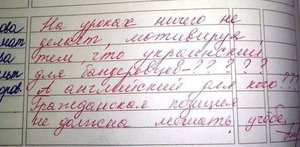 На уроках ничего не
делает, мотивируя
тем, что украинский
для бандеровцев-?????
А английский для кого???
Гражданская позиция
не должна мешать учебе